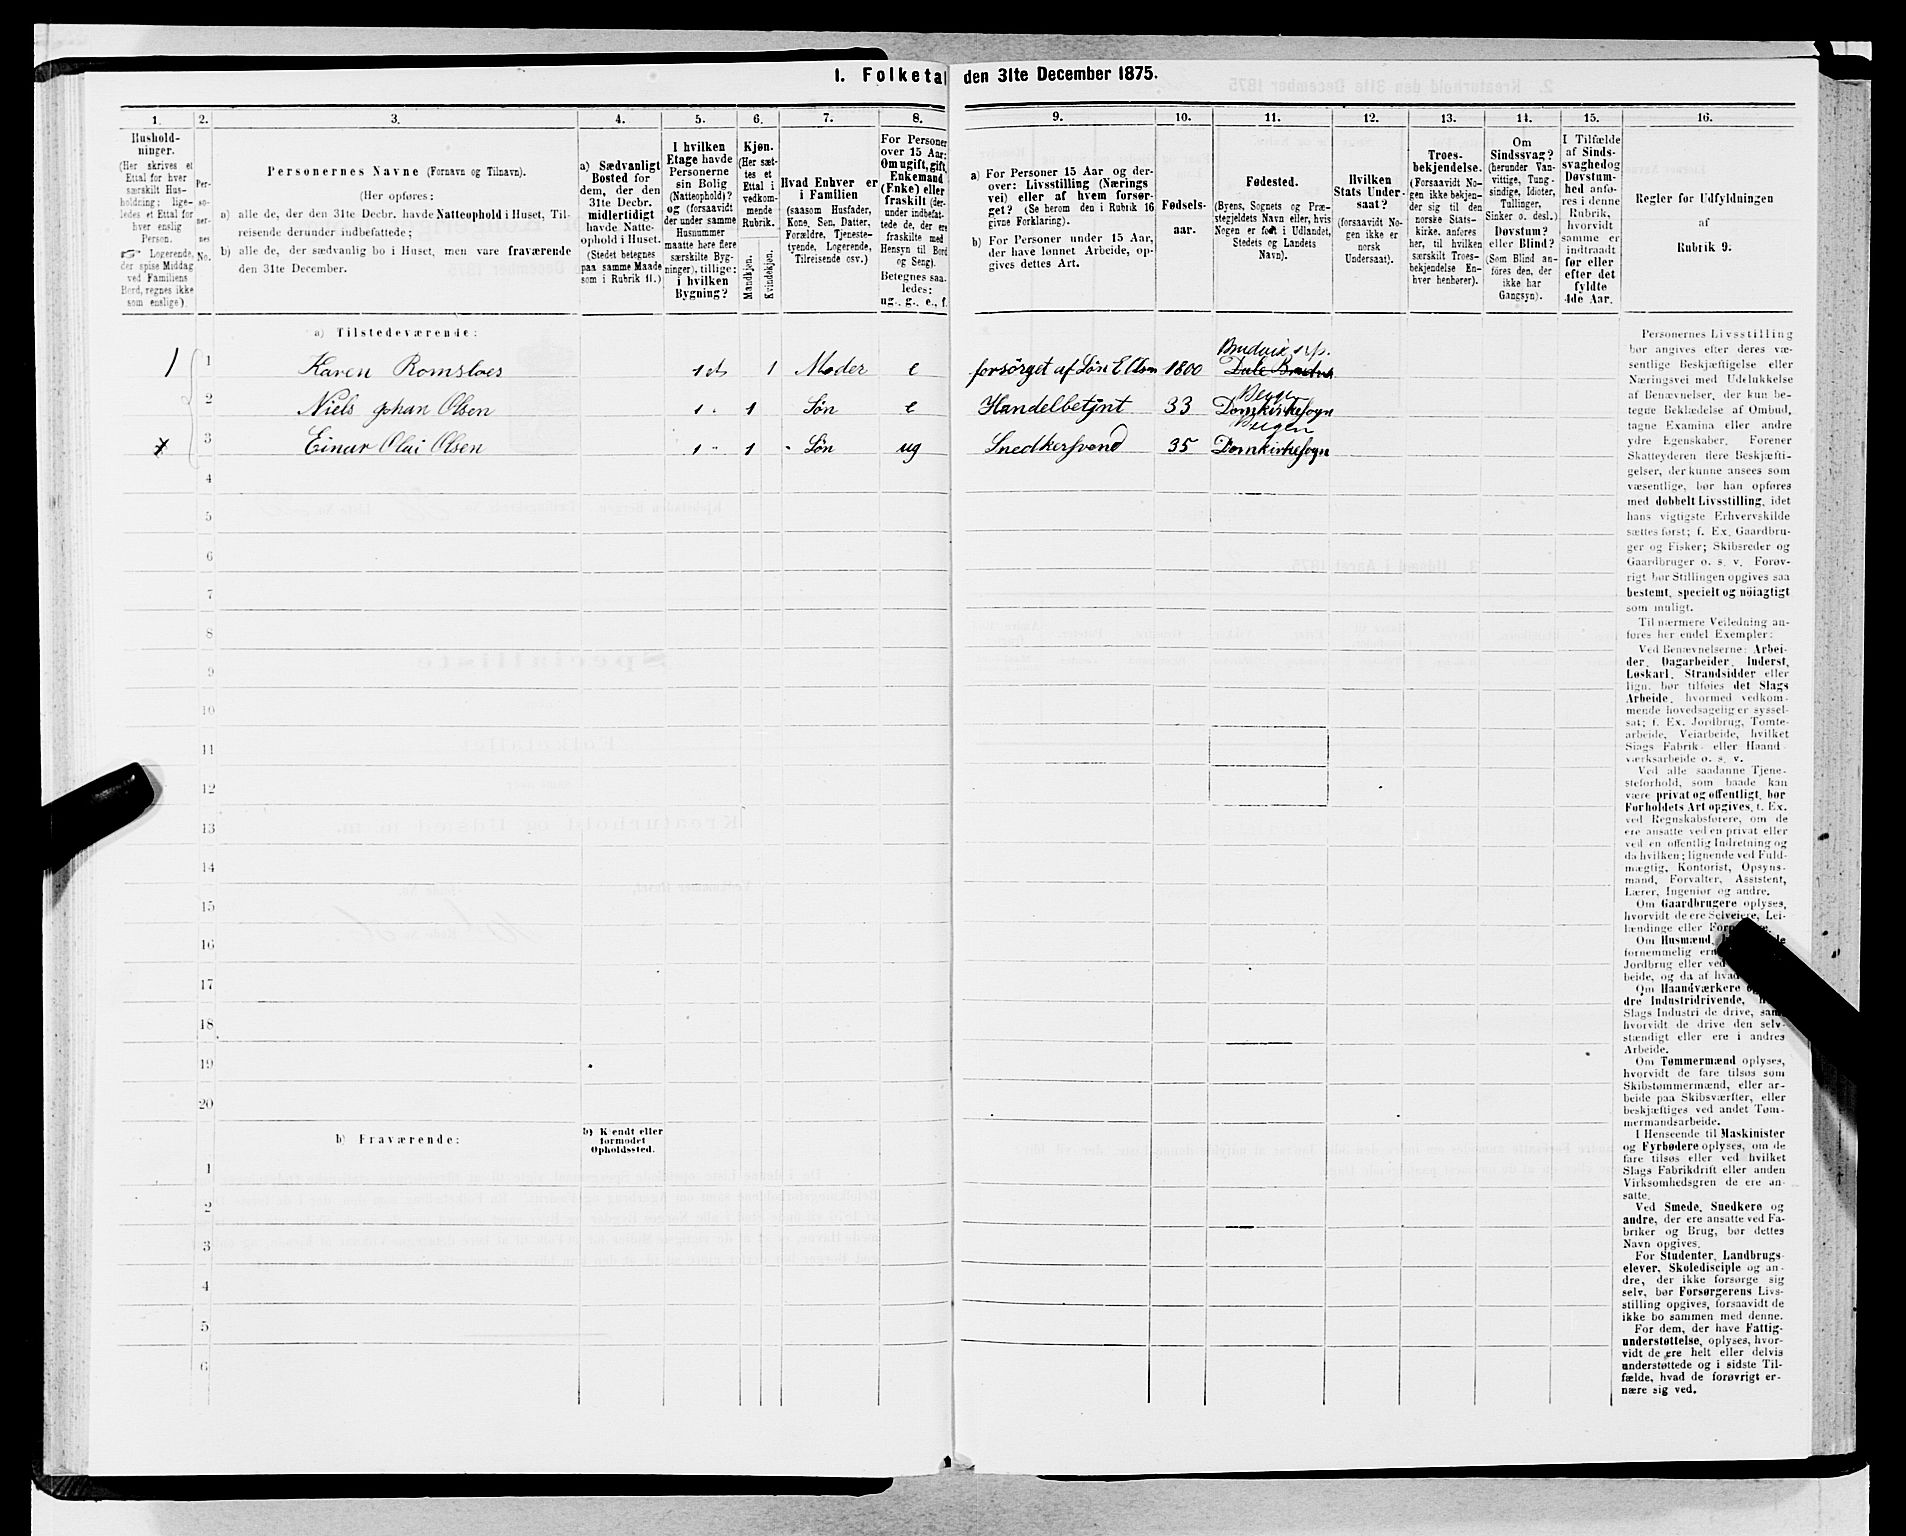 1. Folketal den 31te December 1875.
1. 2. 3. 4. 5. 6. 7. 8. 9. 10. 11. 12. 13. 14. 15. 16.
Hushold-
ninger.
(Her skrives et
Ettal for hver
særskilt Hus-
holdning; lige-
ledes et Ettal for
hver enslig
Person.
☞ Logerende,
der spise Middag
ved Familiens
Bord, regnes ikke
som enslige).
Per-
so-
ner-
nes
No.
Personernes Navne (Fornavn og Tilnavn).
(Her opføres:
a) alle de, der den 31te Decbr. havde Natteophold i Huset, Til-
reisende derunder indbefattede;
b) alle de, der sædvanlig bo i Huset, men vare fraværende
den 31te December.
a) Sædvanligt
Bosted for
dem, der den
31te Decbr.
midlertidigt
havde Natte-
ophold i Huset.
(Stedet betegnes
paa samme Maade
som i Rubrik 11.)
I hvilken
Etage havde
Personerne
sin Bolig
(Natteophold)?
og (forsaavidt
der under samme
Husnummer
maatte høre flere
særskilte Byg-
ninger), tillige:
i hvilken
Bygning?
Kjøn.
(Her sæt-
tes et
Ettal i
vedkom-
mende
Rubrik.
Mandkjøn.
Kvindekjøn.
Hvad Enhver er
i Familien
(saasom Husfader,
Kone, Søn, Datter,
Forældre, Tjeneste-
tyende, Logerende,
Tilreisende osv.)
For Personer
over 15 Aar:
Om ugift, gift,
Enkemand
(Enke) eller
fraskilt (der-
under indbefat-
tede de, der ere
fraskilte med
Hensyn til Bord
og Seng).
Betegnes saa-
ledes:
ug., g., e., f.
a) For Personer 15 Aar og der-
over: Livsstilling (Nærings
vei) eller af hvem forsør-
get? (Se herom den i Rubrik 16
givne Forklaring).
b) For Personer under 15 Aar,
der have lønnet Arbeide, op-
gives dettes Art.
Fødsels-
aar.
Fødested.
(Byens, Sognets og Præ-
stegjeldets Navn eller, hvis
Nogen er født i Udlandet,
Stedets og Landets
Navn).
Hvilken
Stats Under-
saat?
(forsaavidt No-
gen ikke er
norsk
Undersaat).
Troes-
bekjendelse.
(Forsaavidt No-
gen ikke bekjen-
der sig til den
norske Stats-
kirke, anføres
her, til hvilken
særskilt Troes-
bekjendelse En-
hver henhører).
Om
Sindssvag?
(herunder Van-
vittige, Tung-
sindige, Idioter,
Tullinger,
Sinker o. desl.)
Døvstum?
eller Blind?
(Som Blind an-
føres den, der
ikke har
Gangsyn).
I Tilfælde
af Sinds-
svaghed og
Døvstum-
hed anfø-
res i denne
Rubrik,
hvorvidt
samme er
indtraadt
før eller
efter det
fyldte
4de Aar.
Regler for Udfyldningen
af
Rubrik 9.
a) Tilstedeværende:
1 1 Karen Romsloes 1 et 1 Moder e forsörget af Sön E Olsen 1800 Bruvik s/p.
2 Niels Johan Olsen 1 " 1 Sön e Handelbetjnt 33 Bergen Domkirkesogn
3 Einar Olai Olsen 1 " 1 Sön ug Snedkersvend 35 Bergen Domkirkesogn
4
5
6
7
8
9
10
11
12
13
14
15
16
17
18
19
20
b) Fraværende:
b) Kjendt eller
formodet
Opholdssted.
1
2
3
4
5
6
Personernes Livsstilling
bør angives efter deres væ-
sentlige Beskjæftigelse eller
Næringsvei med Udelukkelse
af Benævnelser, der kun be-
tegne Beklædelse af Ombud,
tagne Examina eller andre
ydre Egenskaber. Forener
Skatteyderen flere Beskjæfti-
gelser, der kunne ansees som
væsentlige, bør han opføres
med dobbelt Livsstilling, idet
hans vigtigste Erhvervskilde
sættes først; f. Ex. Gaardbru-
ger og Fisker; Skibsreder og
Gaardbruger o. s. v. Forøv-
rigt bør Stillingen opgives saa
bestemt, specielt og nöiagtigt
som muligt.
Til nærmere Veiledning an-
føres her endel Exempler:
Ved Benævnelserne: Arbei-
der, Dagarbeider, Inderst,
Løskarl, Strandsidder eller
lign. bør tilføies det Slags
Arbeide, hvormed vedkom-
mende hovedsagelig er syssel-
sat; f. Ex. Jordbrug, Tomte-
arbeide, Veiarbeide, hvilket
Slags Fabrik- eller Haand-
værksarbeide o. s. v.
Ved alle saadanne Tjene-
steforhold, som baade kan
være privat og offentligt, bør
Forholdets Art opgives, f. Ex.
ved Regnskabsførere, om de
ere ansatte ved en privat eller
ved en offentlig Indretning og
da hvilken; lignende ved Fuld-
mægtig, Kontorist, Opsyns-
mand, Forvalter, Assistent,
Lærer, Ingeniør og andre.
Om Gaardbrugere oplyses,
hvorvidt de ere Selveiere, Lei-
lændinge eller
Om Husmænd,
fornemmelig
Jordbrug eller ved
beide, og da af
Om Haandværkere
dre Industridrivende,
Slags Industri de drive,
hvorvidt de drive den selv-
stændigt eller ere i andres
Arbeide.
Om Tømmermænd oplyses,
hvorvidt de fare tilsøs som
Skibstømmermænd, eller ar-
beide paa Skibsværfter, eller
beskjæftiges ved andet Tøm-
mermandsarbeide.
I Henseende til Maskinister
og Fyrbødere oplyses, om de
fare tilsøs eller ved hvilket
Slags Fabrikdrift eller anden
Virksomhedsgren de ere an-
satte.
Ved Smede, Snedkere og
andre, der ere ansatte ved Fa-
briker og Brug, bør dettes
Navn opgives.
For Studenter, Landbrugs-
elever, Skoledisciple og an-
dre, der ikke forsørge sig
selv, bør Forsørgerens Livs-
stilling opgives, forsaavidt de
ikke bo sammen med denne.
For dem, der have Fattig-
understøttelse, oplyses, hvor-
vidt de ere helt eller delvis
understøttede og i sidste Til-
fælde, hvad de forøvrigt er-
nære sig ved.